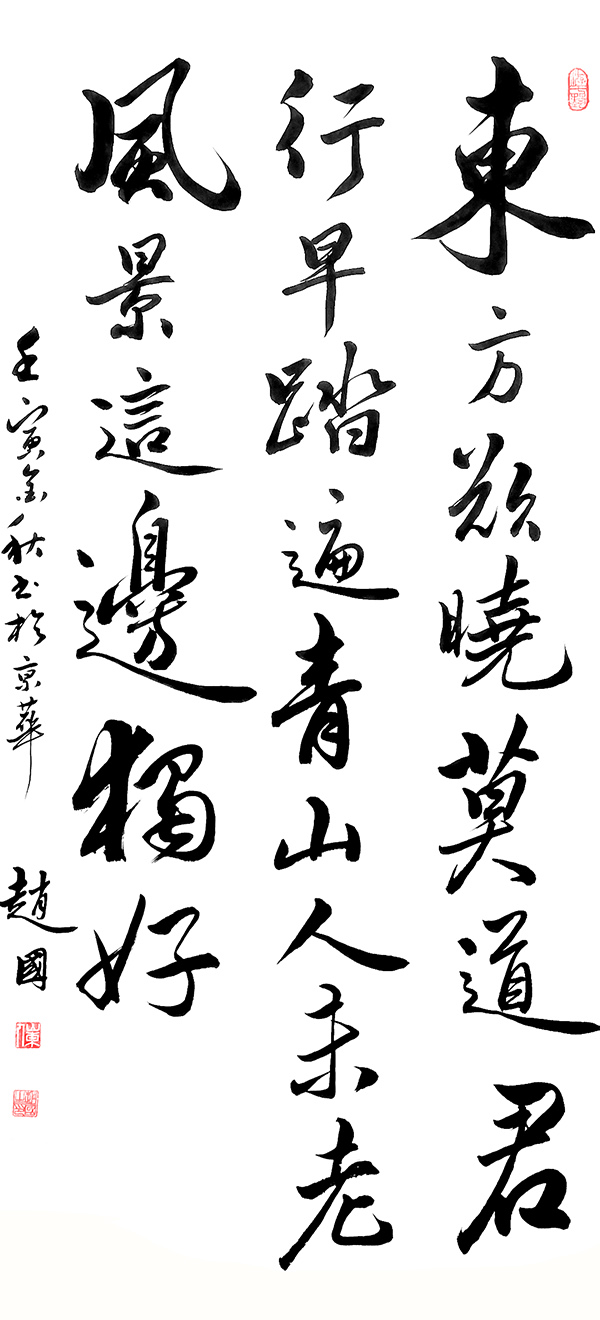 東方欲曉莫道君
行早踏遍青山人未老
風景這邊獨好
壬寅金秋書於京華
趙國